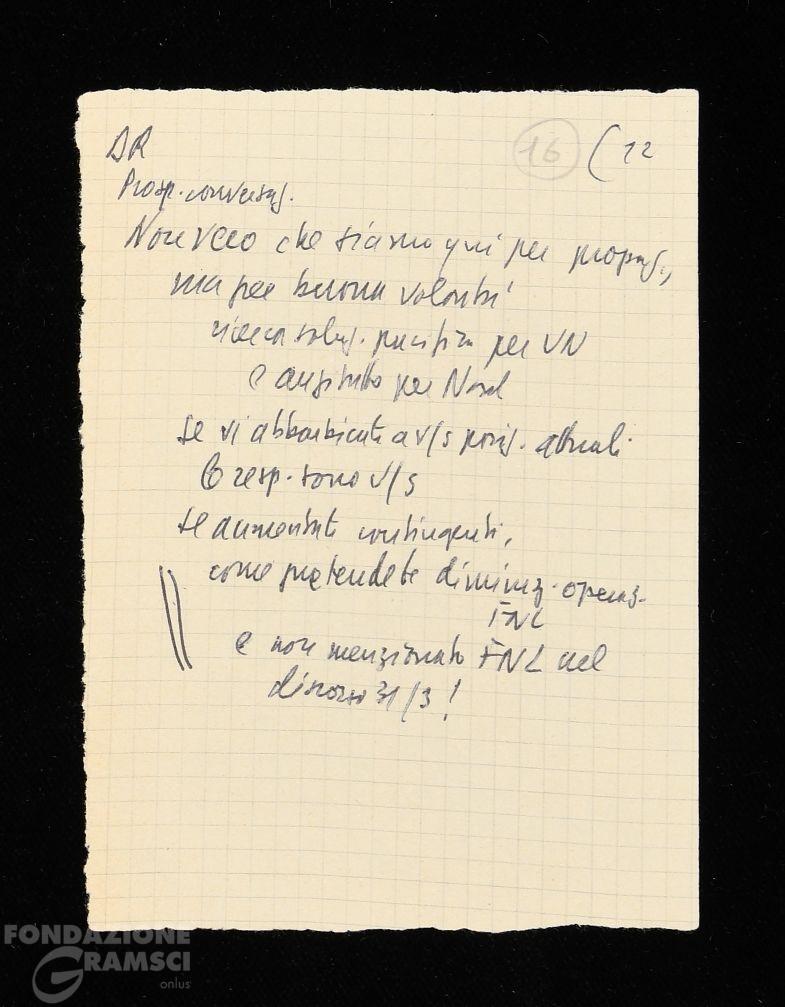 DR
16 (12
Prosp. conversaz.
Non vero che siamo qui per propag.,
ma per buona volontà
ricerca soluz. pacifica per VN
e anzitutto per Nord
se vi abbarbicate a v/s posiz. attuali
resp. sono v/s
se aumentate contingenti,
come pretendete diminuz. operaz.
FNL
e non menzionato FNL nel
discorso 31/3!
FONDAZIONE
GRAMSCI
onlus